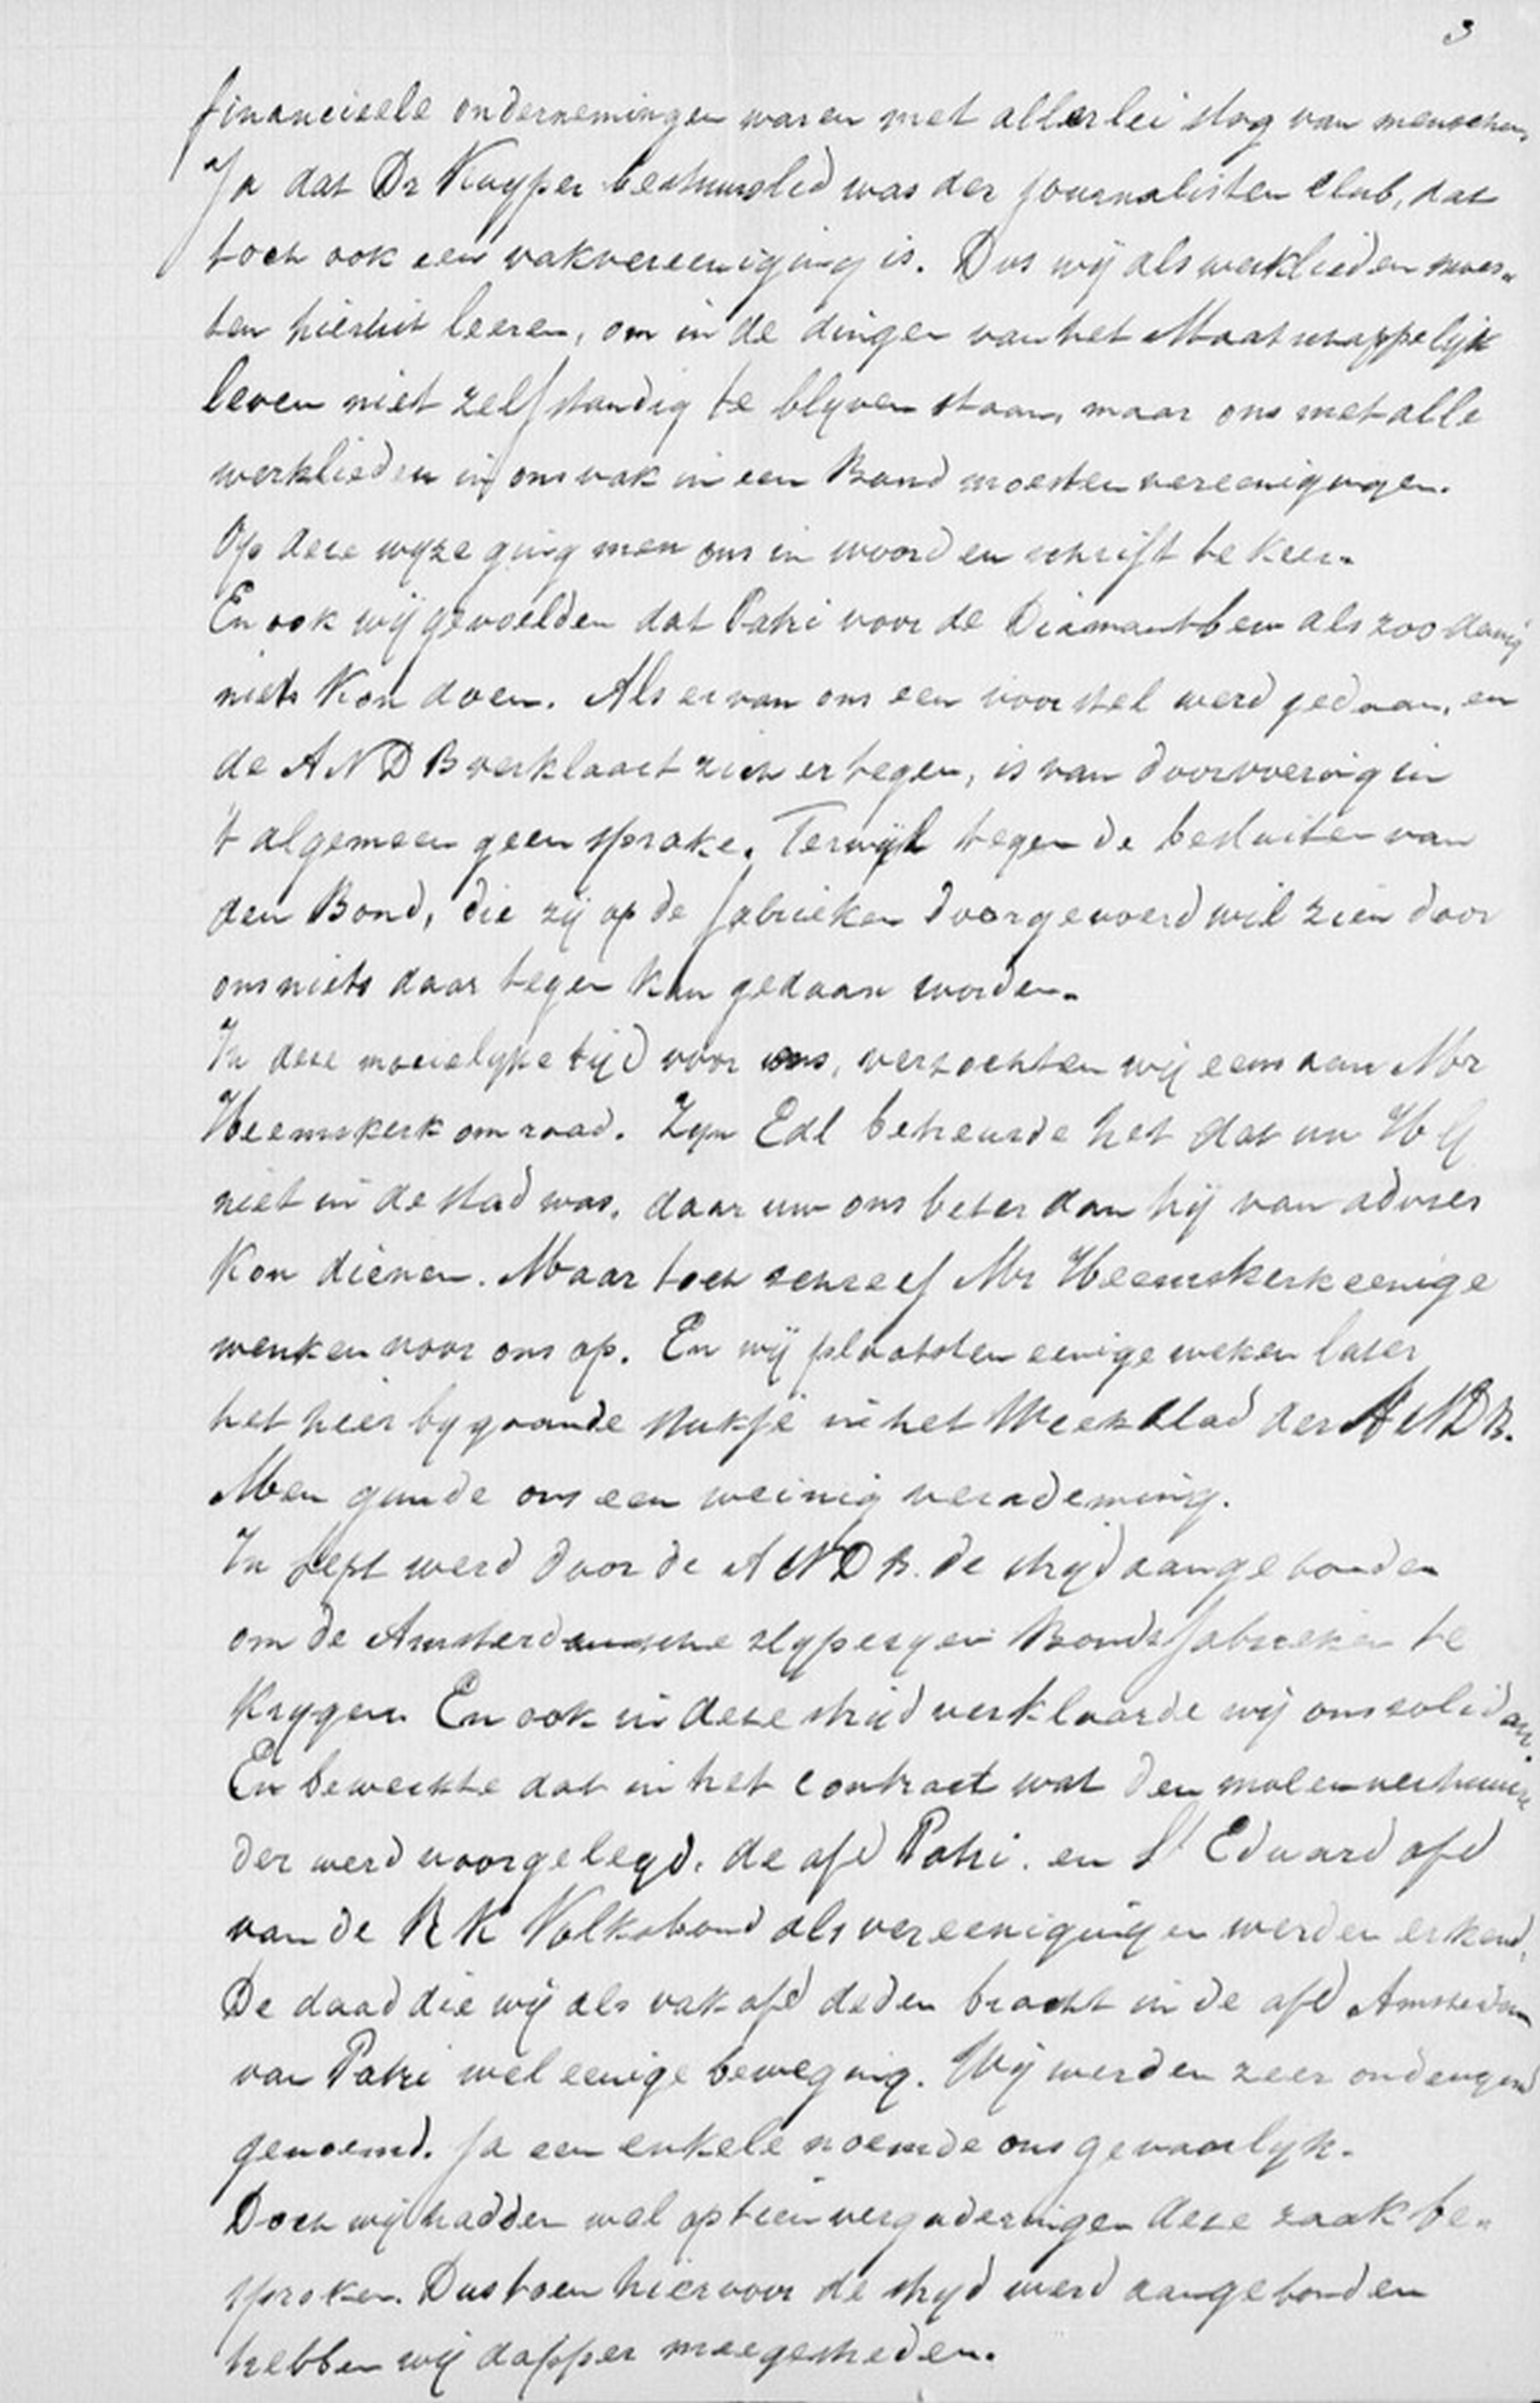 3
financieele ondernemingen waren met allerlei slag van menschen,
Ja dat Dr Kuyper bestuurslid was der journalisten club, dat
toch ook een vakvereeniging is. Dus wij als werklieden moes„
ten hieruit leeren, om in de dingen van het Maatschappelijk
leven niet zelfstandig te blyven staan, maar ons met alle
werklieden in ons vak in een Bond moesten vereenigingen.
Op deze wyze ging men ons in woord en schrift te keer.
En ook wij gevoelden dat Patri voor de Diamantbew als zoodanig
niets kon doen. Als er van ons een voorstel werd gedaan, en
de ANDB verklaart zich er tegen, is van doorvoering in
't algemeen geen sprake. Terwijl tegen de besluiten van
den Bond, die zij op de fabrieken doorgevoerd wil zien door
ons niets daar tegen kan gedaan worden.
In deze moeielyke tijd voor ons, verzochten wij eens aan Mr
Heemskerk om raad. Zyn Edl betreurde het dat uw HG
niet in de stad was, daar uw ons beter dan hij van advies
kon dienen. Maar toch schreef Mr Heemskerk eenige
wenken voor ons op. En wij plaatsten eenige weken later
het hier bygaande stukje in het Weekblad der ANDB.
Men gunde ons een weinig verademing.
In Sept werd door de ANDB. de strijd aangebonden
om de Amsterdamsche slyperyen Bondsfabrieken te
krygen. En ook in deze strijd verklaarde wij ons solidair.
En bewerkte dat in het contract wat den molenverhuur„
der werd voorgelegd. de afd Patri. en St Eduard afd
van de RK Volksbond als vereenigingen werden erkend,
De daad die wij als vakafd deden bracht in de afd Amsterdam
van Patri wel eenige beweging. Wij werden zeer ondeugend
genoemd. Ja een enkele noemde ons gevaarlyk.
Doch wij hadden wel op tien vergaderingen deze zaak be„
sproken. Dus toen hiervoor de strijd werd aangebonden
hebben wij dapper meegestreden.